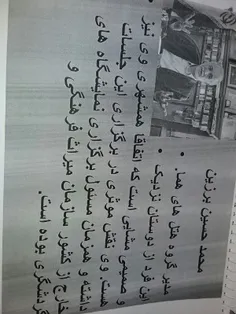 محمد حسین برزین
• مدیر گروه هتل های هما.
• این فرد از دوستان نزدیک
و صمیمی مشایی است که اتفاقا همشهری وی نیز
هست. وی نقش موثری در برگزاری این جلسات
داشته و همزمان مسئول برگزاری نمایشگاه های
خارج از کشور سازمان میراث فرهنگی و
گردشگری بوده است.